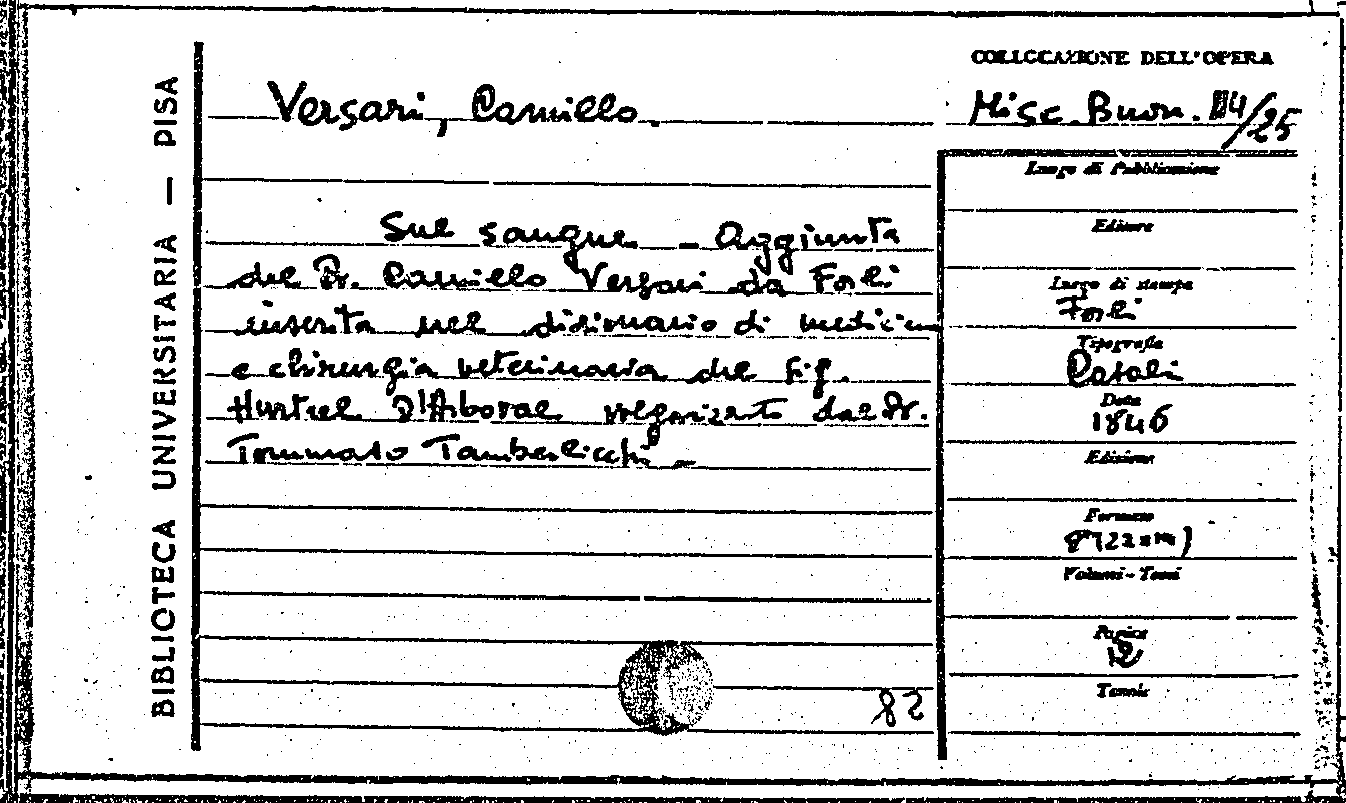 BIBLIOTECA UNIVERSITARIA — PISA
Versari, Camillo.
Sul sangue - Aggiunta
del Dr. Camillo Versari da Forlì
inserita nel dizionario di medicina
e chirurgia veterinaria del Sig.
Hurtrel D'Arboval volgarizzato dal Dr.
Tommaso Tamberlicchi -
82
COLLOCAZIONE DELL'OPERA
Misc. Buon. /25
Luogo di Pubblicazione
Editore
Luogo di stampa
Forlì
Tipografia
Casali
Data
1846
Edizione
Formato
8°(22 cm)
Volumi - Tomi
Pagine
Tavole